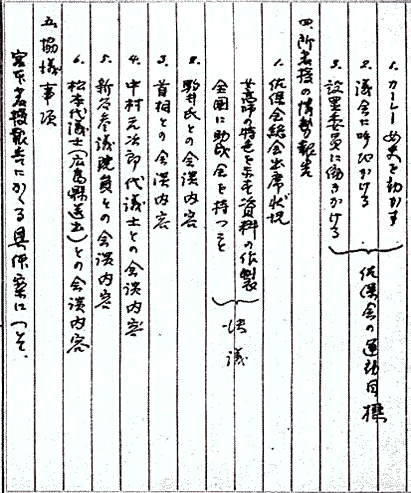 1. カーレー女史を動かす
2. 議会に呼びかける
3. 設置委員に働きかける
佐保会の運動目標
四、所名授の情勢報告
1. 佐保会総会出席状況
女高師の特色を示す資料の作製
全国に助成会を持つこと
決議
2. 駒井氏との会談内容
3. 首相との会談内容
4. 中村元次郎代議士との会談内容
5. 新谷参議院員との会談内容
6. 松本代議士(広島県選出)との会談内容
五、協議事項
にかくる具体案について、